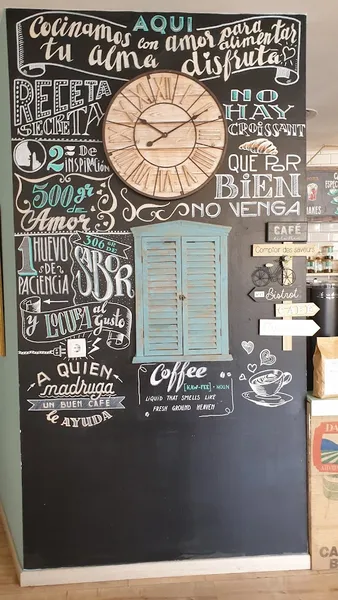 AQUI
Cocinamos con amor para alimentar
tu alma disfruta
RECETA
SECRETA
2 TZ DE
INSPIRACIÓN
500gr de
Amor
1 HUEVO
DE
PACIENCIA
306 GR DE
SABOR
y LOCURA al Gusto
A QUIEN
madruga
UN BUEN CAFÉ
le AYUDA
NO
HAY
CROISSANT
QUE POR
BIEN
NO VENGA
Coffee
[KAW-FEE] • NOUN
LIQUID THAT SMELLS LIKE
FRESH GROUND HEAVEN
CAFÉ
Comptoir des saveurs
Bistrot